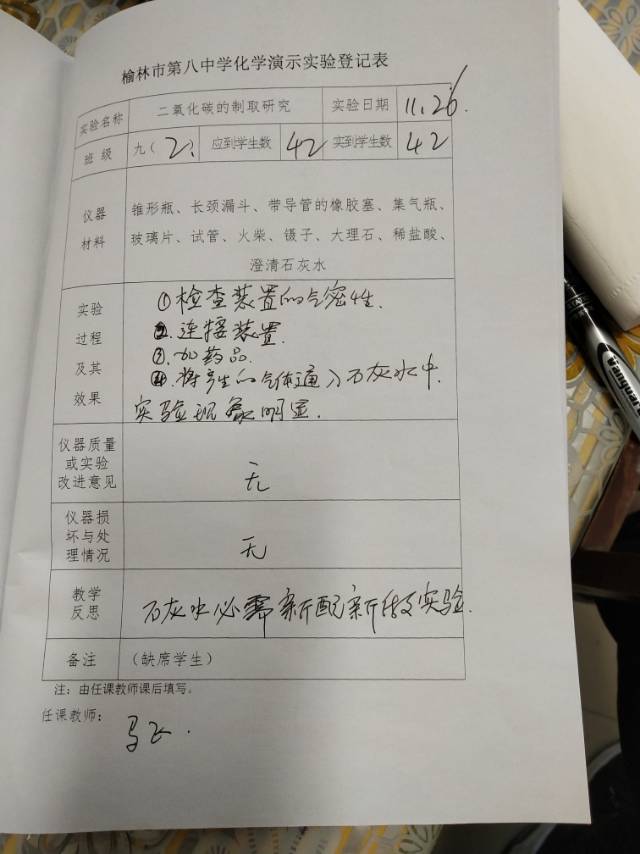 榆林市第八中学化学演示实验登记表
实验名称 二氧化碳的制取研究 实验日期 11.26.
班级 九(2) 应到学生数 42 实到学生数 42
仪器
材料
锥形瓶、长颈漏斗、带导管的橡胶塞、集气瓶、
玻璃片、试管、火柴、镊子、大理石、稀盐酸、
澄清石灰水
实验
过程
及其
效果
①检查装置的气密性.
②.连接装置.
③.加药品.
④.将产生的气体通入石灰水中.
实验现象明显.
仪器质量
或实验
改进意见
无
仪器损
坏与处
理情况
无
教学
反思
石灰水必需新配新做实验.
备注 (缺席学生)
注:由任课教师课后填写。
任课教师: